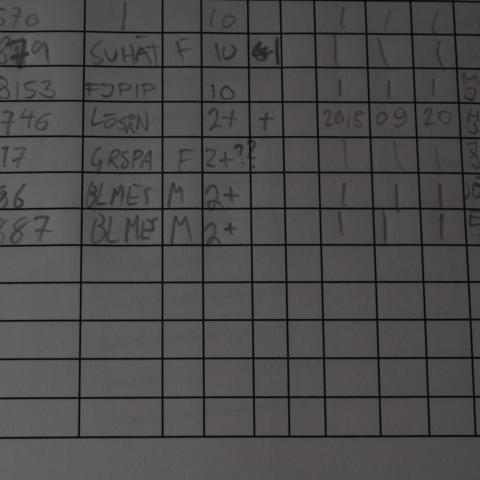 570 | 10 | | |
879 SUHAT F 10 | | |
8153 FJPIP 10 | | |
746 LOSIN 2+ + 2015 09 20
17 GRSPA F 2+?? | | |
86 BLMES M 2+ | | |
887 BLMES M 2+ | | |